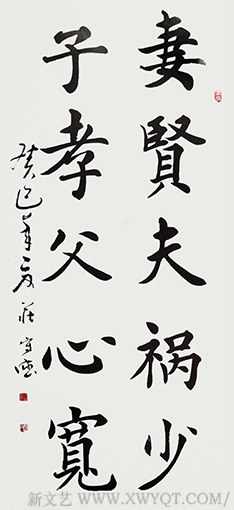 妻賢夫祸少
子孝父心寬
癸巳年
新文艺 WWW.XWYQT.COM/